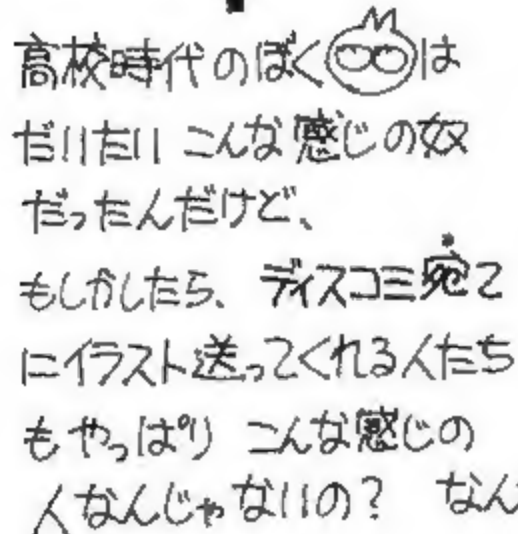 高校時代のぼくは
だいたいこんな感じの奴
だったんだけど、
もしかしたら、ディスコミ宛て
にイラスト送ってくれる人たち
もやっぱり こんな感じの
人なんじゃないの? なん